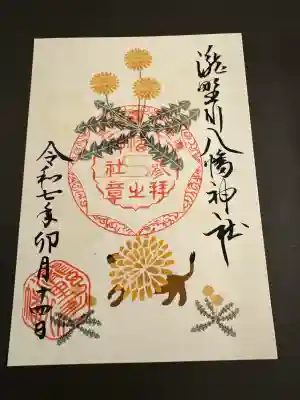 瀧野川八幡神社
参拝
之
社章
令和七年卯月十四日